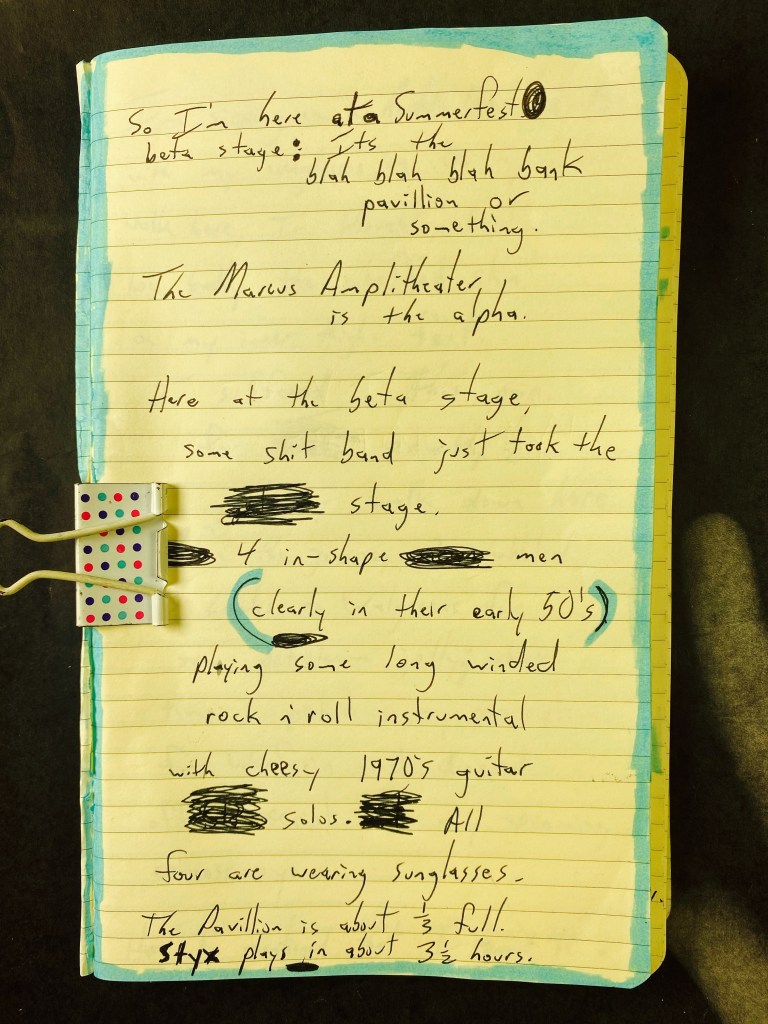 So I'm here at a Summerfest
beta stage: Its the
blah blah blah bank
pavillion or
something.
The Marcus Amplitheater
is the alpha.
Here at the beta stage,
some shit band just took the
stage.
4 in-shape men
(clearly in their early 50's)
playing some long winded
rock n' roll instrumental
with cheesy 1970's guitar
solos. All
four are wearing sunglasses.
The Pavillion is about 1/3 full.
Styx plays in about 3 1/2 hours.